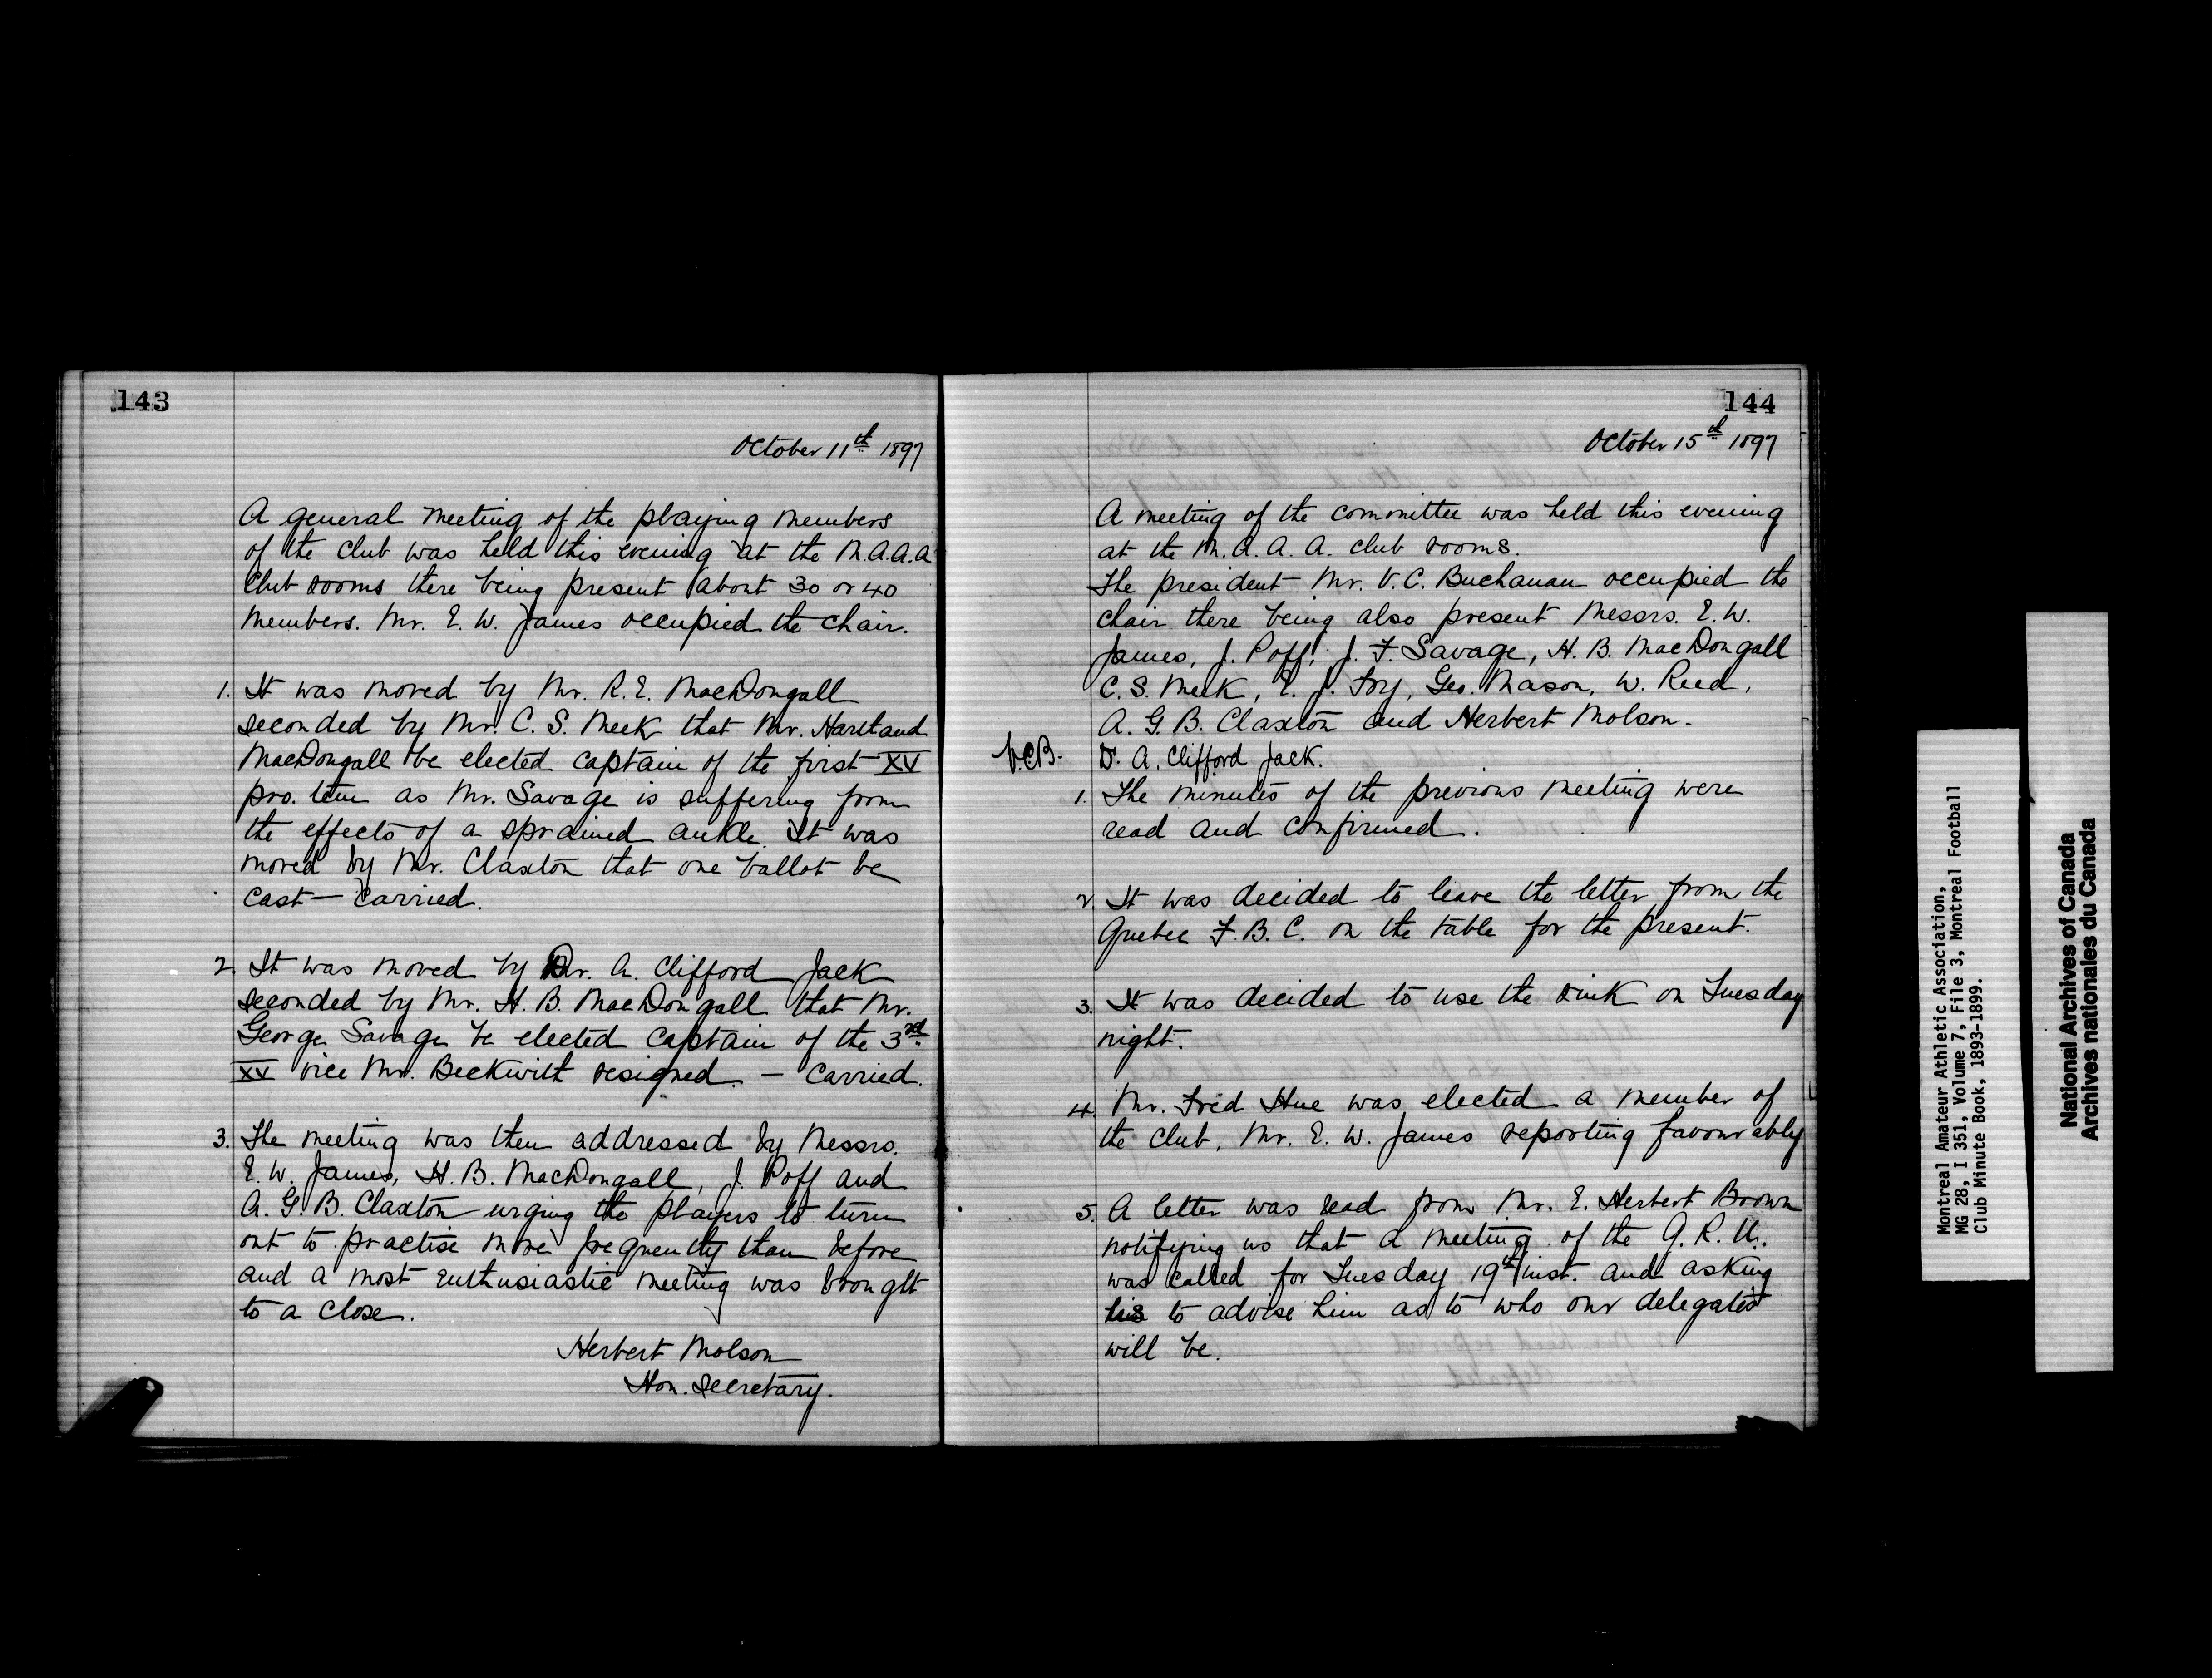 143
October 11th 1897
A general meeting of the playing members
of the club was held this evening at the M.A.A.A
Club rooms there being present about 30 or 40
members. Mr. E. W. James occupied the chair.
1. It was moved by Mr. R. E. MacDougall
seconded by Mr. C. S. Meek that Mr. Hartland
MacDougall be elected captain of the first XV
pro. tem as Mr. Savage is suffering from
the effects of a sprained ankle. It was
moved by Mr. Claxton that one ballot be
cast — Carried.
2. It was moved by Dr. A. Clifford Jack
seconded by Mr. H. B. MacDougall that Mr.
George Savage be elected Captain of the 3rd
XV vice Mr. Beckwith resigned. — Carried.
3. The meeting was then addressed by Messrs.
E. W. James, H. B. MacDougall, J. Poff and
A. G. B. Claxton urging the players to turn
out to practise more frequently than before
and a most enthusiastic meeting was brought
to a close.
Herbert Molson
Hon. Secretary.
144
October 15th 1897
A meeting of the committee was held this evening
at the M. A. A. A. club rooms.
The president Mr. V. C. Buchanan occupied the
chair there being also present Messrs. E. W.
James, J. Poff, J. F. Savage, H. B. MacDougall
C. S. Meek, E. J. Fry, Geo. Mason, W. Reed,
A. G. B. Claxton and Herbert Molson.
V.C.B. D. A. Clifford Jack.
1. The minutes of the previous meeting were
read and confirmed.
2. It was decided to leave the letter from the
Quebec F. B. C. on the table for the present.
3. It was decided to use the rink on Tuesday
night.
4. Mr. Fred Hue was elected a member of
the club, Mr. E. W. James reporting favourably
5. A letter was read from Mr. E. Herbert Brown
notifying us that a meeting of the Q. R. U.
was called for Tuesday 19th inst. and asking
us to advise him as to who our delegates
will be.
Montreal Amateur Athletic Association,
MG 28, I 351, Volume 7, File 3, Montreal Football
Club Minute Book, 1893-1899.
National Archives of Canada
Archives nationales du Canada